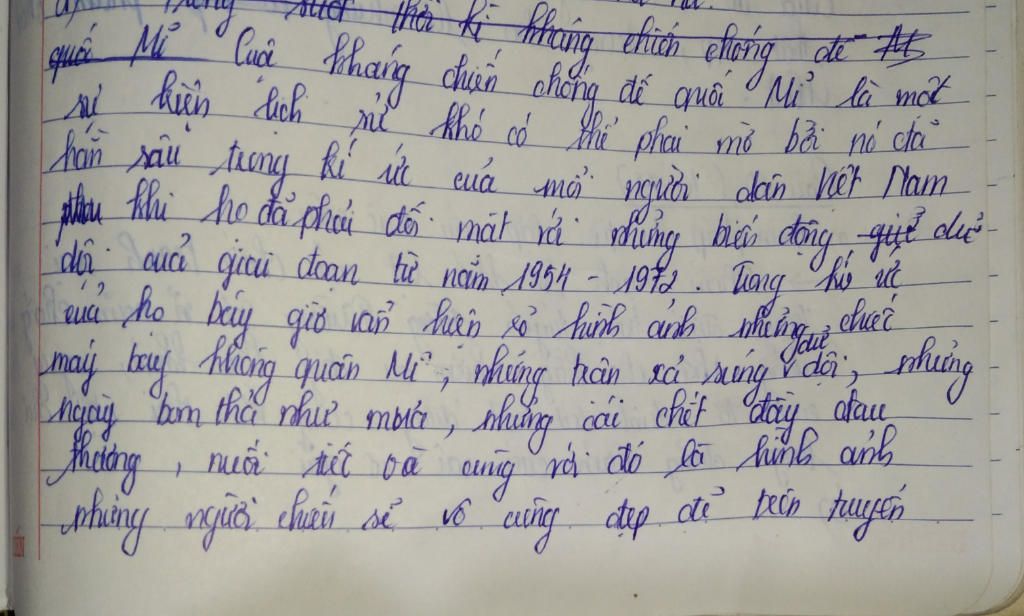 a) Trong suốt thời kì kháng chiến chống đế
quốc Mĩ Cuộc kháng chiến chống đế quốc Mĩ là một
sự kiện lịch sử khó có thể phai mờ bởi nó đã
hằn sâu trong kí ức của mỗi người dân Việt Nam
khi họ đã phải đối mặt với những biến động dữ
dội của giai đoạn từ năm 1954 - 1972. Trong kí ức
của họ bây giờ vẫn hiện rõ hình ảnh những chiếc
máy bay không quân Mĩ, những trận xả súng dữ dội, những
ngày bom thả như mưa, những cái chết đầy đau
thương, nuối tiếc và cùng với đó là hình ảnh
những người chiến sĩ vô cùng đẹp đẽ trên tuyến